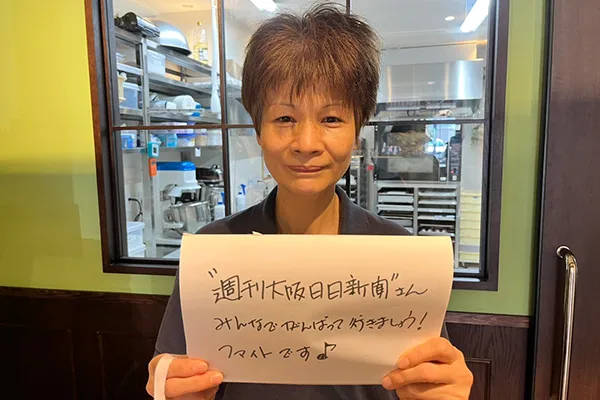 "週刊大阪日日新聞"さん
みんなでがんばって行きましょう!
ファイトです♪